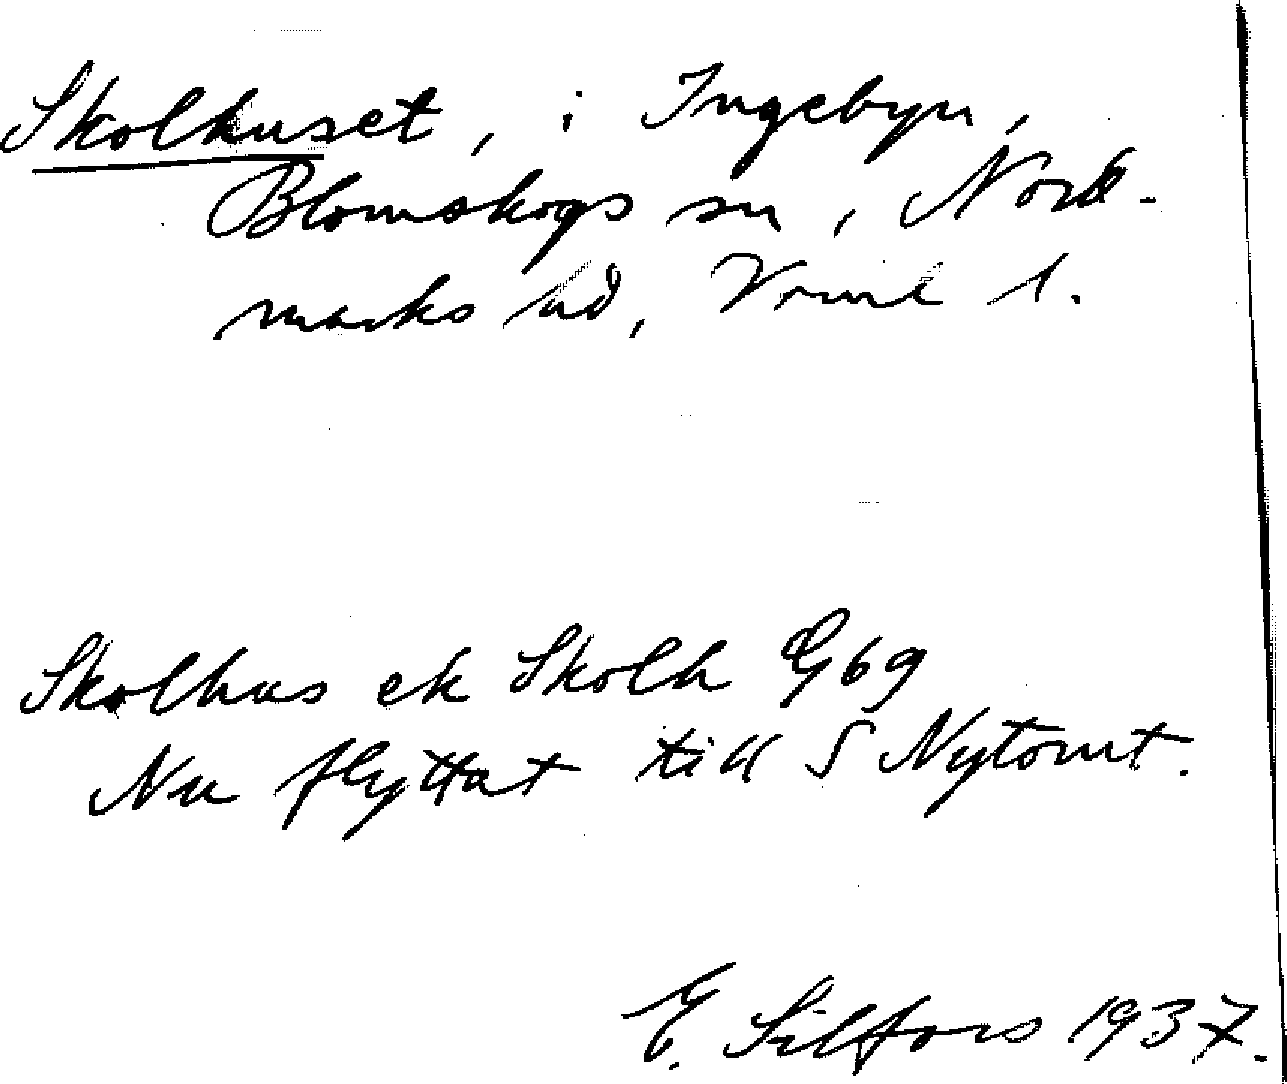 Skolhuset, i Ingebyn,
Blomskogs sn, Nord-
marks hd, Vrml l.
Skolhus ek Skolh G69
Nu flyttat till S Nytomt.
E. Silfors 1937.